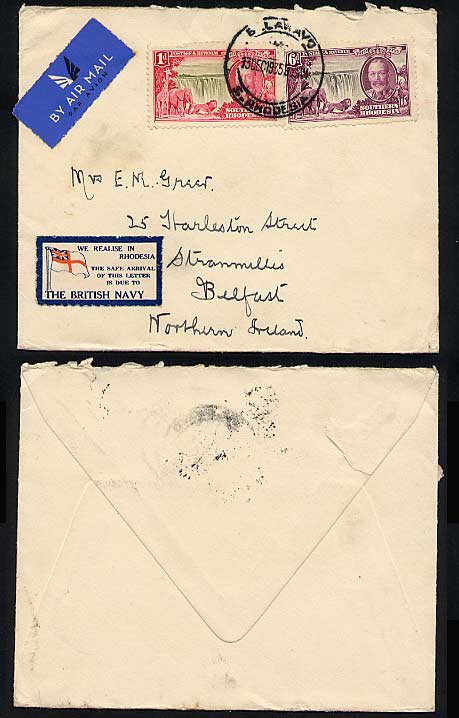 BY AIR MAIL
PAR AVION
1d
POSTAGE & REVENUE
SOUTHERN
RHODESIA
6d
SOUTHERN
RHODESIA
LAWAYO
DEC 1935
S. RHODESIA
Mrs E. M. Greer.
25 Harleston Street
Stranmillis
Belfast
Northern Ireland.
WE REALISE IN
RHODESIA
THE SAFE ARRIVAL
OF THIS LETTER
IS DUE TO
THE BRITISH NAVY